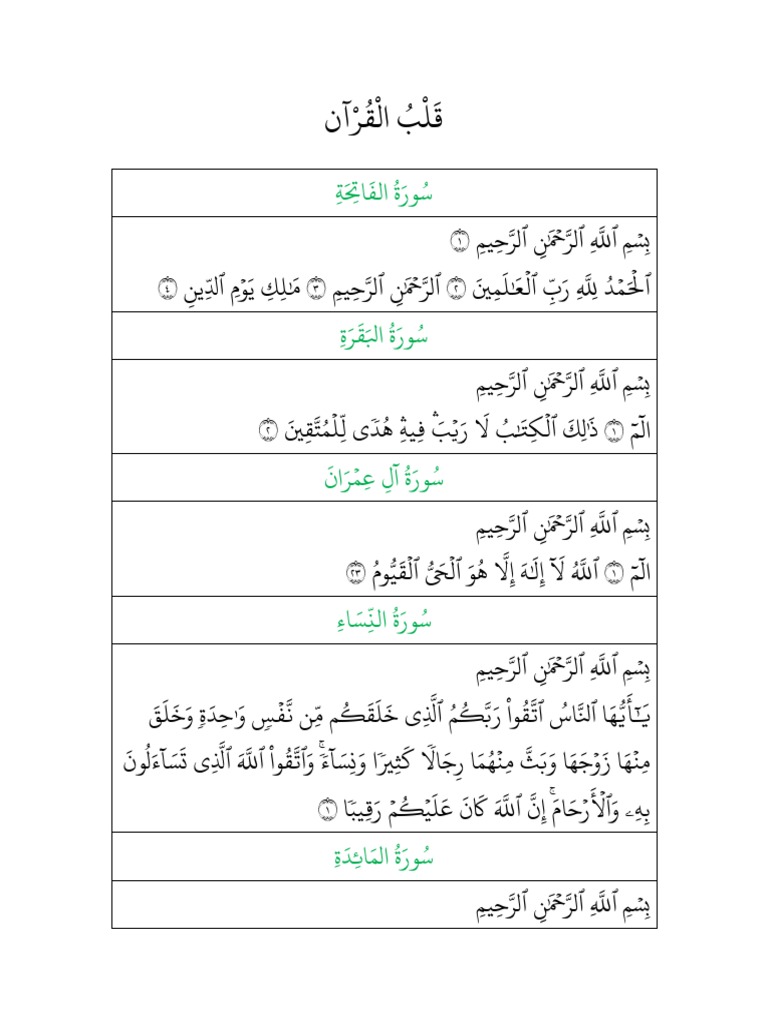 قَلْبُ الْقُرْآن
سُورَةُ الفَاتِحَةِ
بِسۡمِ ٱللَّهِ ٱلرَّحۡمَٰنِ ٱلرَّحِيمِ ١
ٱلۡحَمۡدُ لِلَّهِ رَبِّ ٱلۡعَٰلَمِينَ ٢ ٱلرَّحۡمَٰنِ ٱلرَّحِيمِ ٣ مَٰلِكِ يَوۡمِ ٱلدِّينِ ٤
سُورَةُ البَقَرَةِ
بِسۡمِ ٱللَّهِ ٱلرَّحۡمَٰنِ ٱلرَّحِيمِ
الٓمٓ ١ ذَٰلِكَ ٱلۡكِتَٰبُ لَا رَيۡبَۛ فِيهِۛ هُدٗى لِّلۡمُتَّقِينَ ٢
سُورَةُ آلِ عِمۡرَانَ
بِسۡمِ ٱللَّهِ ٱلرَّحۡمَٰنِ ٱلرَّحِيمِ
الٓمٓ ١ ٱللَّهُ لَآ إِلَٰهَ إِلَّا هُوَ ٱلۡحَيُّ ٱلۡقَيُّومُ ٢٣
سُورَةُ النِّسَاءِ
بِسۡمِ ٱللَّهِ ٱلرَّحۡمَٰنِ ٱلرَّحِيمِ
يَٰٓأَيُّهَا ٱلنَّاسُ ٱتَّقُواْ رَبَّكُمُ ٱلَّذِي خَلَقَكُم مِّن نَّفۡسٖ وَٰحِدَةٖ وَخَلَقَ
مِنۡهَا زَوۡجَهَا وَبَثَّ مِنۡهُمَا رِجَالٗا كَثِيرٗا وَنِسَآءٗۚ وَٱتَّقُواْ ٱللَّهَ ٱلَّذِي تَسَآءَلُونَ
بِهِۦ وَٱلۡأَرۡحَامَۚ إِنَّ ٱللَّهَ كَانَ عَلَيۡكُمۡ رَقِيبٗا ١
سُورَةُ المَائِدَةِ
بِسۡمِ ٱللَّهِ ٱلرَّحۡمَٰنِ ٱلرَّحِيمِ